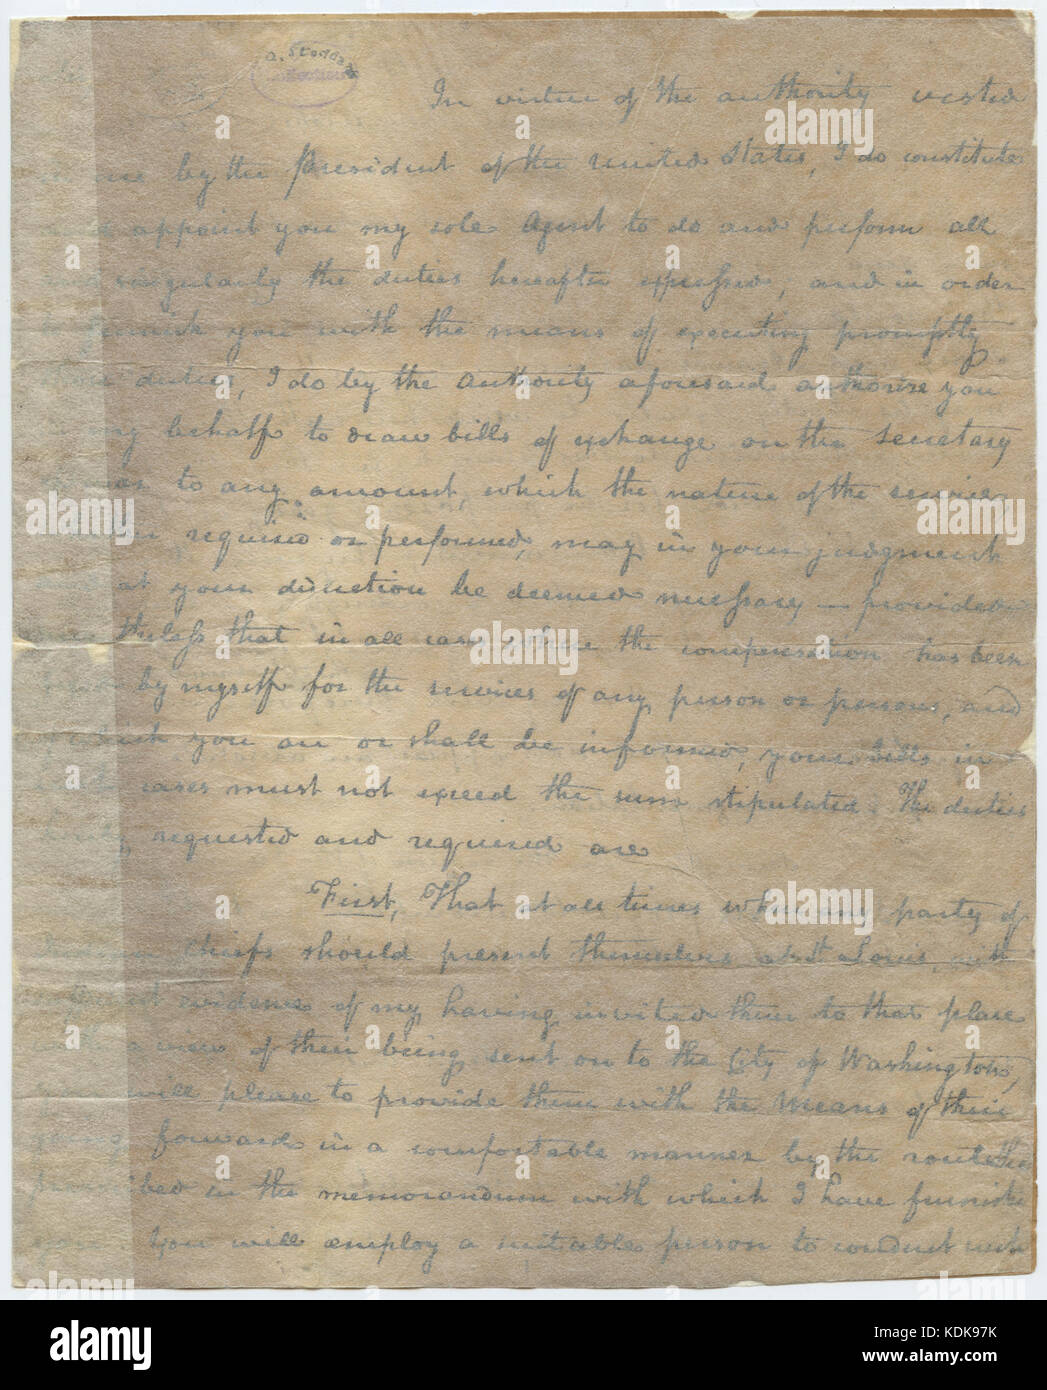 A. Stoddard
Collection
In virtue of the authority vested
me by the President of the United States, I do constitute
appoint you my sole Agent to do and perform all
singularly the duties hereafter expressed, and in order
furnish you with the means of executing promptly
duties, I do by the authority aforesaid authorize you
my behalf to draw bills of exchange on the Secretary
War to any amount, which the nature of the service
required or performed, may in your judgment
at your discretion be deemed necessary — provided
that in all cases where the compensation has been
by myself for the services of any person or persons, and
which you are or shall be informed, your bills in
cases must not exceed the sum stipulated. The duties
requested and required are
First, That at all times when any party of
chiefs should present themselves at St Louis, with
evidence of my having invited them to that place
with a view of their being sent on to the City of Washington,
will please to provide them with the means of their
going forward in a comfortable manner by the route
prescribed in the memorandum with which I have furnished
you. You will employ a suitable person to conduct
alamy
alamy
Image ID: KDK97K
www.alamy.com